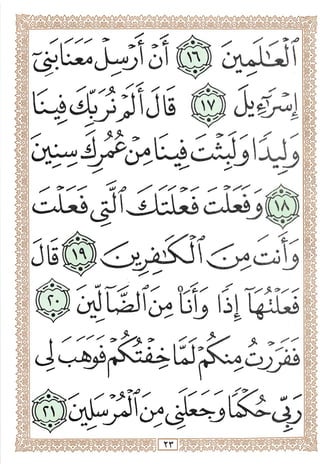 ٱلْعَٰلَمِينَ ١٦ أَنْ أَرْسِلْ مَعَنَا بَنِىٓ
إِسْرَٰٓءِيلَ ١٧ قَالَ أَلَمْ نُرَبِّكَ فِينَا
وَلِيدًا وَلَبِثْتَ فِينَا مِنْ عُمُرِكَ سِنِينَ
١٨ وَفَعَلْتَ فَعْلَتَكَ ٱلَّتِى فَعَلْتَ
وَأَنتَ مِنَ ٱلْكَٰفِرِينَ ١٩ قَالَ
فَعَلْتُهَآ إِذًا وَأَنَا۠ مِنَ ٱلضَّآلِّينَ ٢٠
فَفَرَرْتُ مِنكُمْ لَمَّا خِفْتُكُمْ فَوَهَبَ لِى
رَبِّى حُكْمًا وَجَعَلَنِى مِنَ ٱلْمُرْسَلِينَ ٢١
٢٣